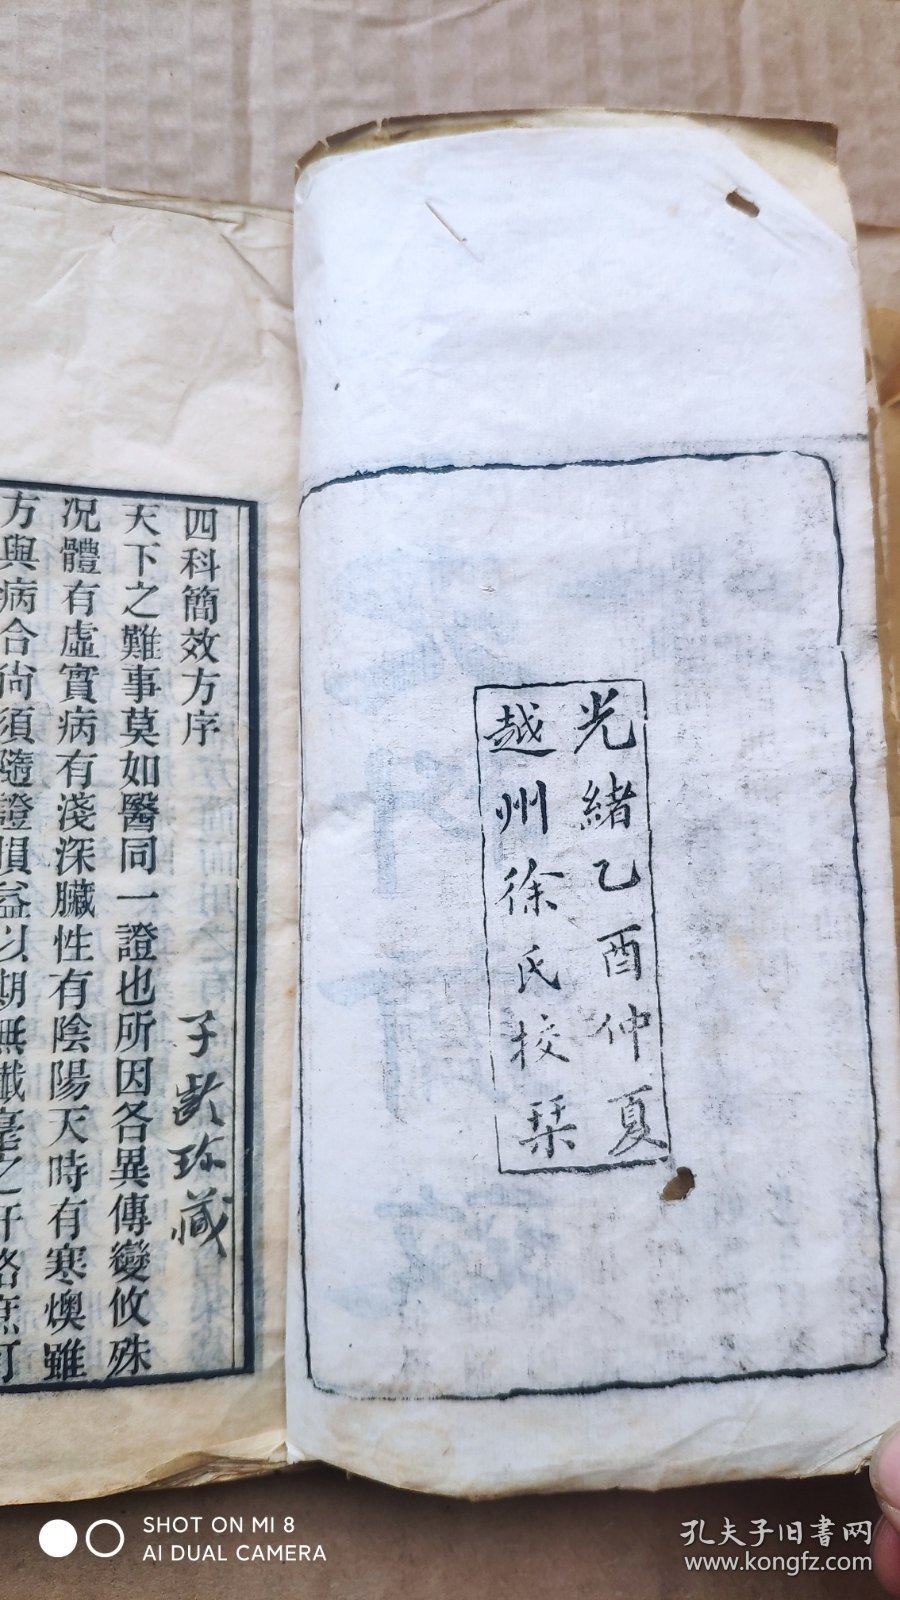 光緒乙酉仲夏
越州徐氏校栞
四科簡效方序
子齡珍藏
天下之難事莫如醫同一證也所因各異傳變攸殊
況體有虛實病有淺深臟性有陰陽天時有寒燠雖
方與病合尚須隨證損益以期無纖毫之扞格庶可
SHOT ON MI 8
AI DUAL CAMERA
孔夫子旧书网
www.kongfz.com